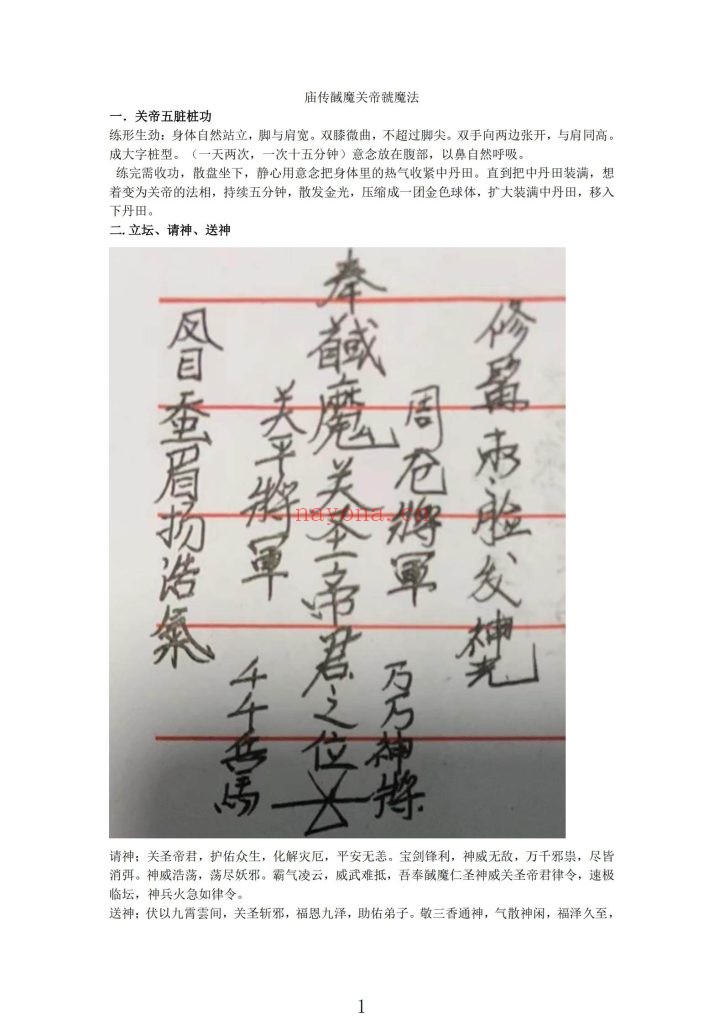 庙传馘魔关帝虢魔法
一．关帝五脏桩功
练形生劲：身体自然站立，脚与肩宽。双膝微曲，不超过脚尖。双手向两边张开，与肩同高。
成大字桩型。（一天两次，一次十五分钟）意念放在腹部，以鼻自然呼吸。
练完需收功，散盘坐下，静心用意念把身体里的热气收紧中丹田。直到把中丹田装满，想
着变为关帝的法相，持续五分钟，散发金光，压缩成一团金色球体，扩大装满中丹田，移入
下丹田。
二.立坛、请神、送神
修髯赤脸发神光
周仓將軍
万万神將
奉馘魔关圣帝君之位
关平將軍
千千兵馬
凤目蚕眉扬浩氣
nayona.cn
请神；关圣帝君，护佑众生，化解灾厄，平安无恙。宝剑锋利，神威无敌，万千邪祟，尽皆
消弭。神威浩荡，荡尽妖邪。霸气凌云，威武难抵，吾奉馘魔仁圣神威关圣帝君律令，速极
临坛，神兵火急如律令。
送神；伏以九霄雲间，关圣斩邪，福恩九泽，助佑弟子。敬三香通神，气散神闲，福泽久至，
1